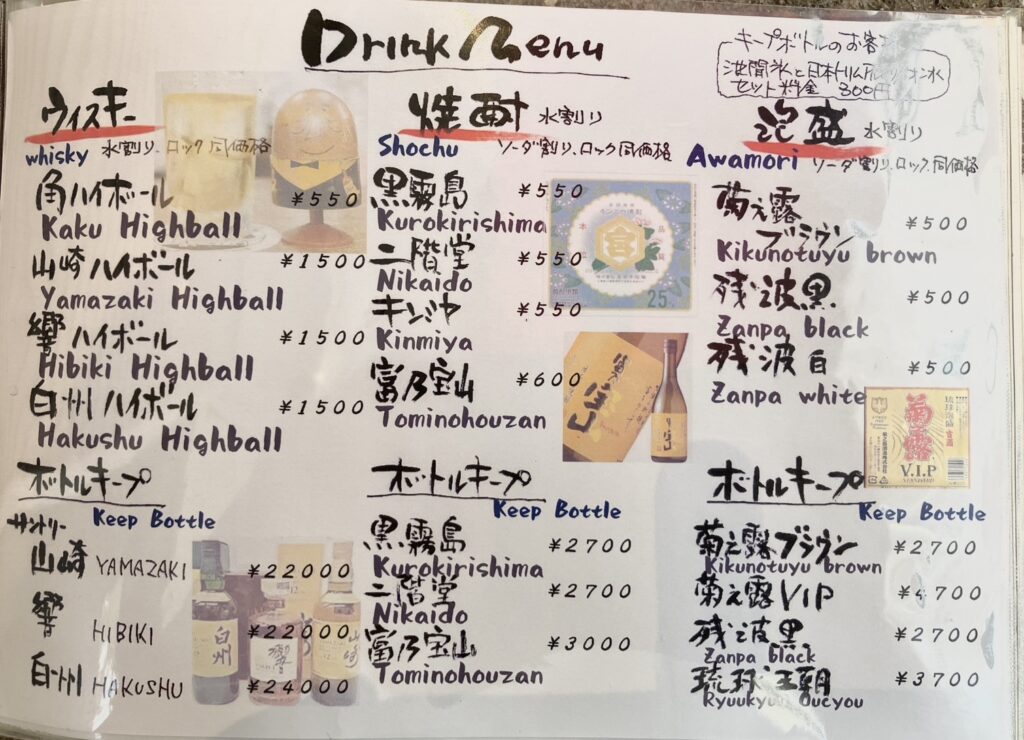 Drink Menu
キープボトルのお客
セット料金 300円
ウィスキー
whisky 水割り、ロック同価格
角ハイボール ¥550
Kaku Highball
山崎ハイボール ¥1500
Yamazaki Highball
響ハイボール ¥1500
Hibiki Highball
白州ハイボール ¥1500
Hakushu Highball
ボトルキープ
Keep Bottle
サントリー
山崎 YAMAZAKI ¥22000
響 HIBIKI ¥22000
白州 HAKUSHU ¥24000
白州
響
山崎
焼酎 水割り
Shochu ソーダ割り、ロック同価格
黒霧島 ¥550
Kurokirishima
二階堂 ¥550
Nikaido
キンミヤ ¥550
Kinmiya
富乃宝山 ¥600
Tominohouzan
宮
25
ボトルキープ
Keep Bottle
黒霧島 ¥2700
Kurokirishima
二階堂 ¥2700
Nikaido
富乃宝山 ¥3000
Tominohouzan
泡盛 水割り
Awamori ソーダ割り、ロック、同価格
菊之露
ブラウン ¥500
Kikunotuyu brown
残波黒 ¥500
Zanpa black
残波白 ¥500
Zanpa white
琉球泡盛
菊之露
V.I.P
ボトルキープ
Keep Bottle
菊之露ブラウン ¥2700
Kikunotuyu brown
菊之露VIP ¥4700
残波黒 ¥2700
Zanpa black
琉球王朝 ¥3700
Oucyou